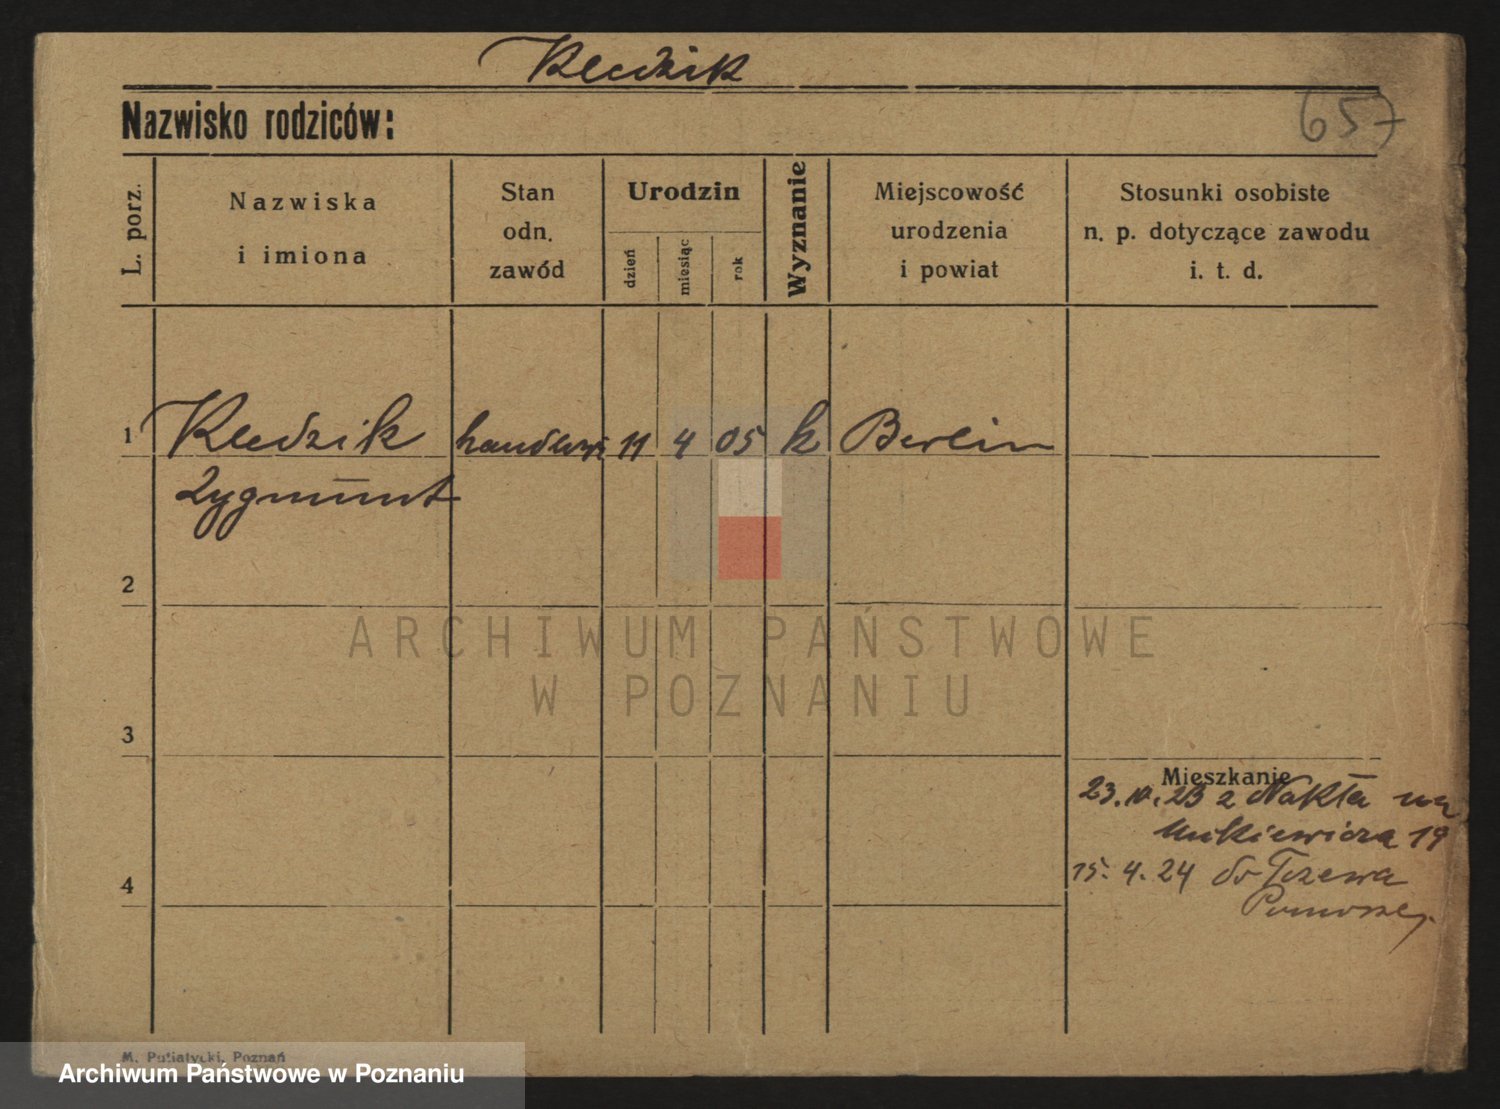 Kledzik
657
Nazwisko rodziców:
L. porz.
Nazwiska
i imiona
Stan
odn.
zawód
Urodzin
dzień
miesiąc
rok
Wyznanie
Miejscowość
urodzenia
i powiat
Stosunki osobiste
n. p. dotyczące zawodu
i. t. d.
1 Kledzik 11 4 05 k Berlin
Zygmunt
2
ARCHIWUM PAŃSTWOWE
W POZNANIU
3
Mieszkanie
23. 23 z Nakła
19
4
15. 4. 24 do Tczewa
M. Putiatycki, Poznań
Archiwum Państwowe w Poznaniu